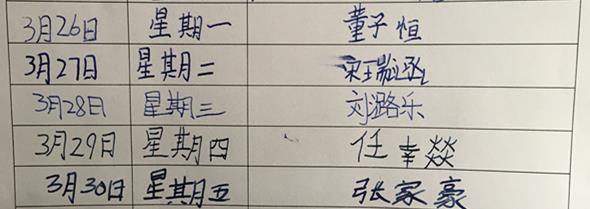 3月26日 星期一 董子恒
3月27日 星期二 宋瑞丞
3月28日 星期三 刘璐乐
3月29日 星期四 任幸燚
3月30日 星期五 张家豪